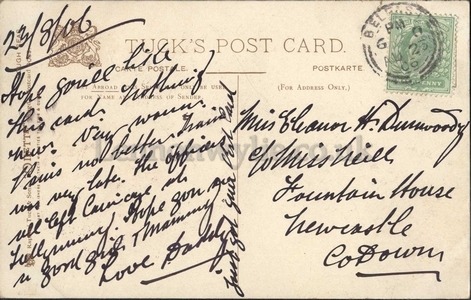 23/8/06
TUCK'S POST CARD.
CARTE POSTALE. POSTKARTE.
(FOR ADDRESS ONLY.)
Hope you'll like
this card. Nothing
new. Very warm.
not better. Train
was very late. The official
all left Carriage at
Hope you are
a good girl. Mammy
Love Daddy
Just got your Post Card
BELFAST
PM
AU 23
06
Miss Eleanor H. Dunwoody
C/o Miss Neill
Fountain House
Newcastle
Co Down